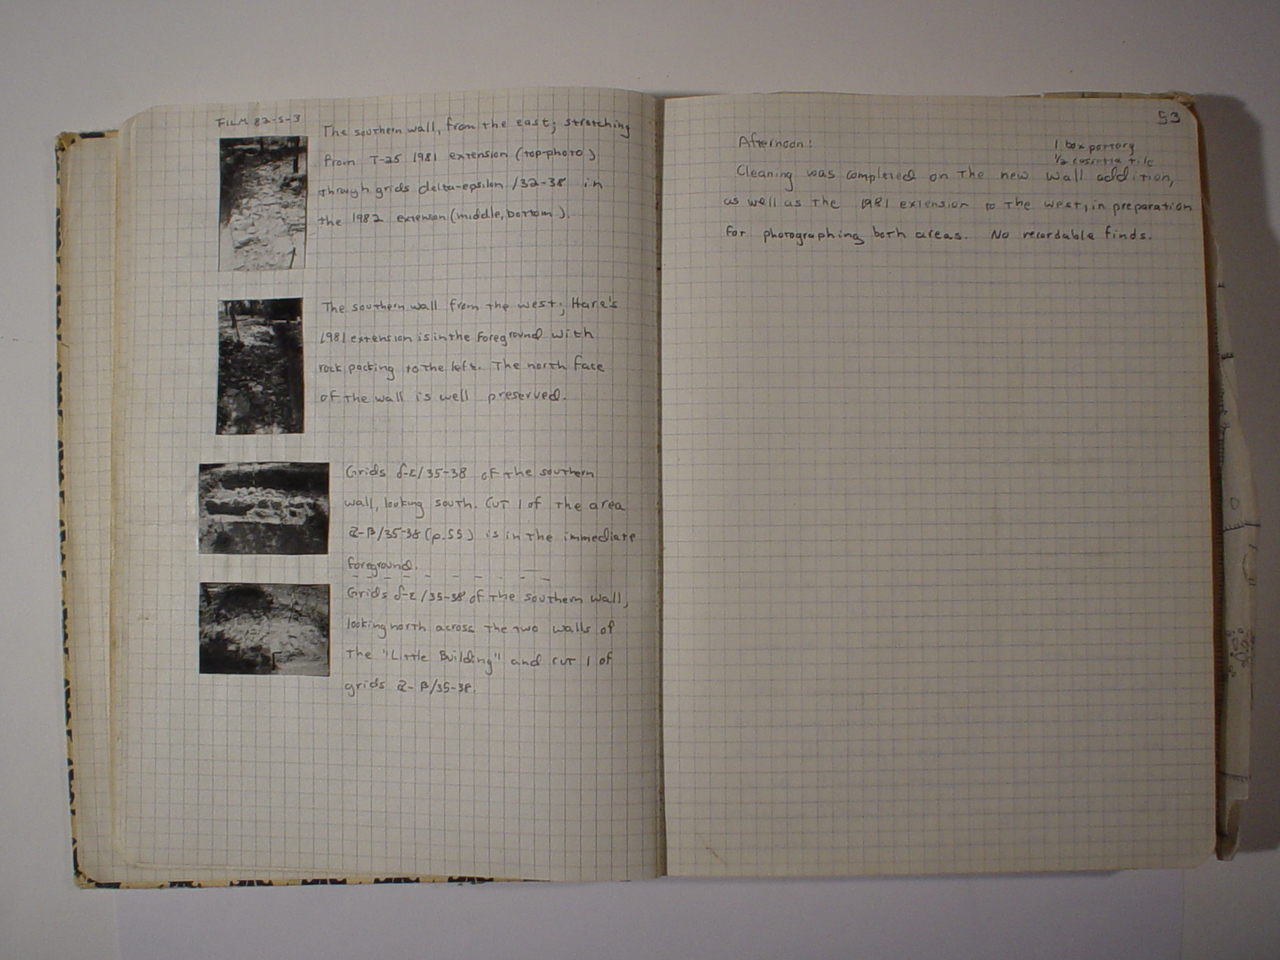 FILM 82-S-3
The southern wall, from the east; stretching
from T-25 1981 extension (top-photo)
through grids delta-epsilon /32-38 in
the 1982 extension (middle, bottom).
The southern wall from the west; Hare's
1981 extension is in the foreground with
rock packing to the left. The north face
of the wall is well preserved.
Grids δ-ε/35-38 of the southern
wall, looking south. Cut 1 of the area
α-β/35-38 (p.55) is in the immediate
foreground.
Grids δ-ε/35-38 of the southern wall,
looking north across the two walls of
The "Little Building" and cut 1 of
grids α-β/35-38.
53
Afternoon:
1 box pottery
1/2 cassetta tile
Cleaning was completed on the new wall addition,
as well as the 1981 extension to the west, in preparation
for photographing both areas. No recordable finds.